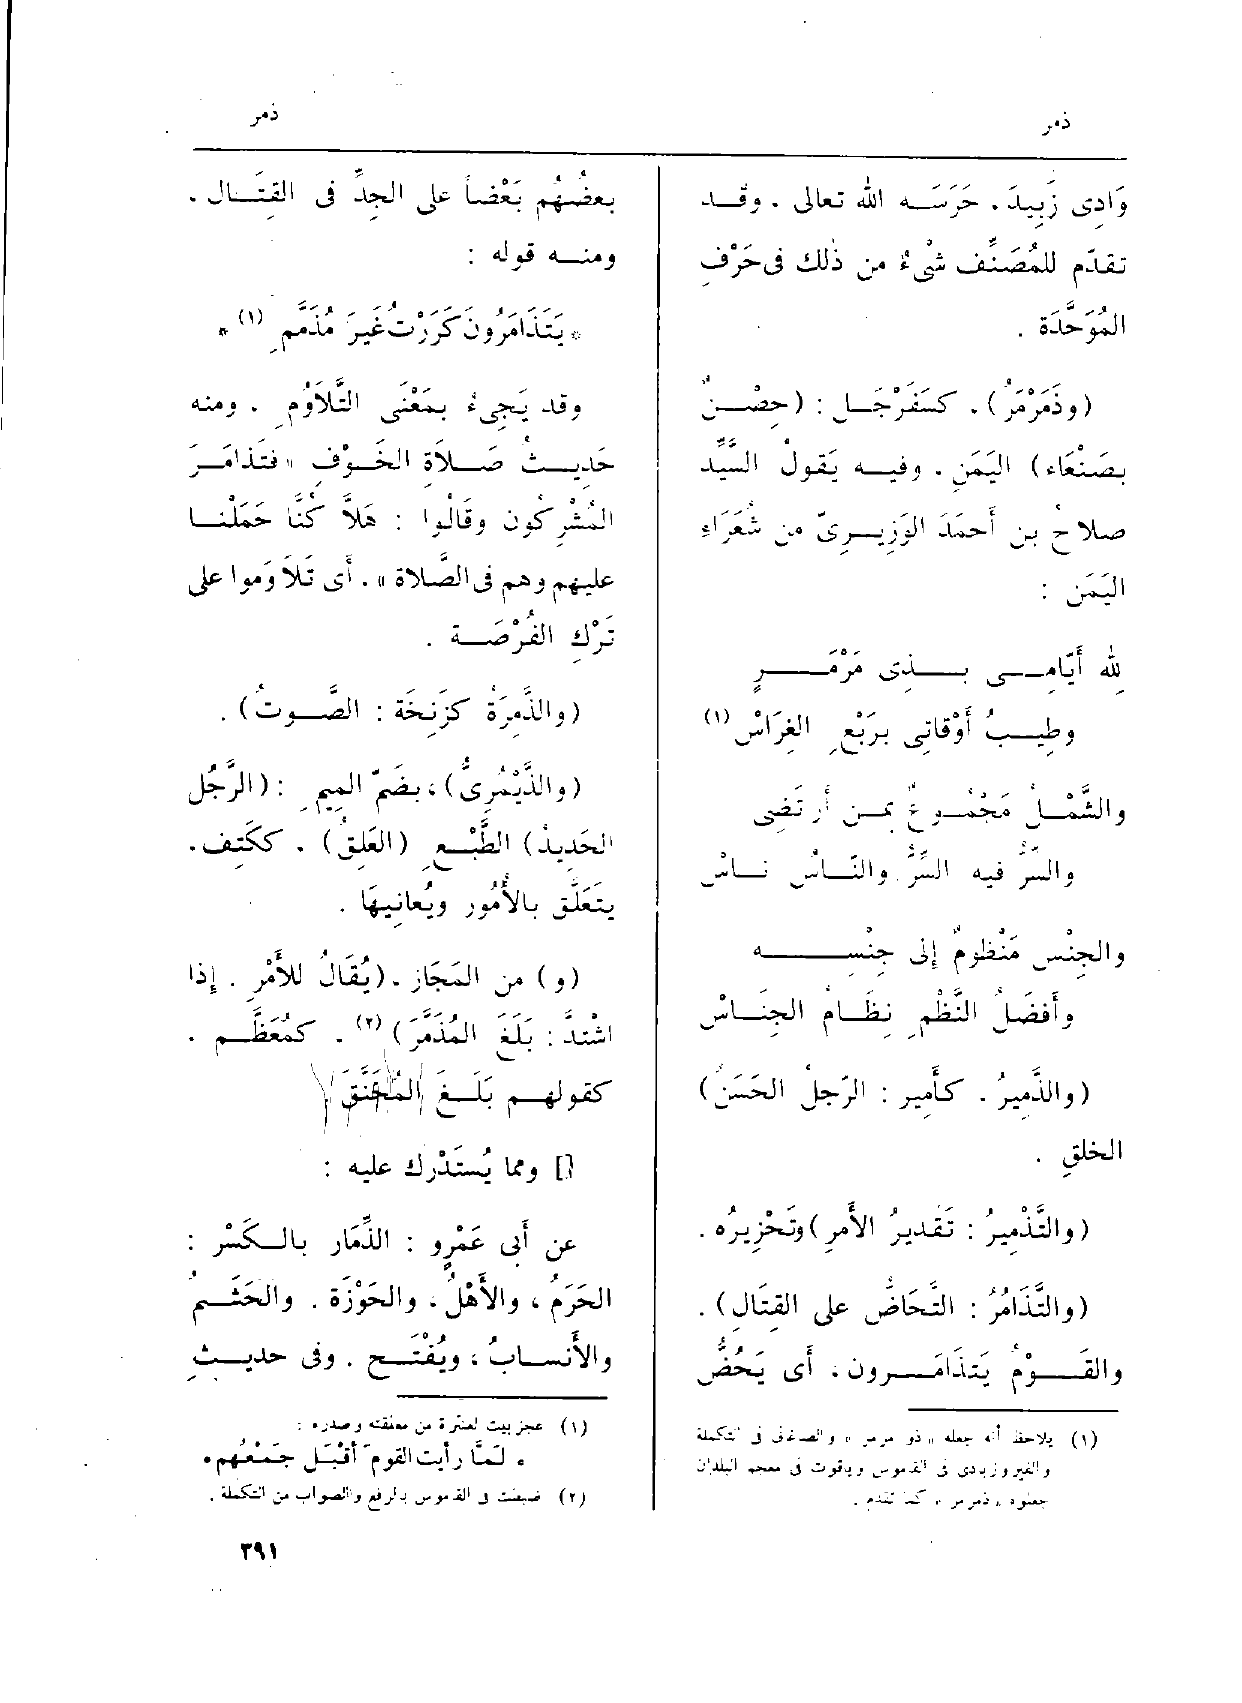 ذمر
ذمر
وَادِى زَبِيدَ، حَرَسَه اللهُ تعالى . وقد
تقدّم للمُصَنِّف شْىءٌ من ذٰلك فى حَرْفِ
المُوَحَّدَة .
(وذَمَرْمَرُ) ، كسَفَرْجَل : (حِصْنٌ
بصَنْعَاء) اليَمَنِ . وفيه يَقولُ السَّيِّد
صلاحُ بن أَحمَدَ الوَزِيرىّ من شُعَرَاءِ
اليَمَن :
لِله أَيّامِى بذِى مَرْمَرٍ
وطِيبُ أَوْقاتِى برَبْعِ الغِرَاسْ (١)
والشَّمْلُ مَجْمُوعٌ بمن أَرتَضِى
والسِّرُّ فيه السِّرُّ والنّاسُ ناسْ
والجِنْس مَنْظومٌ إِلى جِنْسِه
وأَفضَلُ النَّظْمِ نِظَامُ الجِنَاسْ
(والذَّمِيرُ ، كأَمِير : الرّجلُ الحَسَنُ)
الخلقِ .
(والتَّذْمِيرُ : تَقديرُ الأَمرِ) وتَحْزِيرُه .
(والتَّذَامُرُ : التَّحَاضُّ على القِتَالِ) .
والقَوْمُ يَتذَامَرون ، أَى يَحُضُّ
(١) يلاحظ أنه جعله « ذو مرمر » والصغانى فى التكملة
والفيروزبادى فى القاموس وياقوت فى معجم البلدان
جعلوه « ذمرمر » كما تقدم .
بعضُهُم بَعْضاً على الجِدِّ فى القِتَال .
ومنه قوله :
* يَتَذَامَرُونَ كَرَرْتُ غَيرَ مُذَمَّمِ (١) *
وقد يَجِىءُ بمَعْنَى التَّلاَوُمِ . ومنه
حَدِيثُ صَلاَةِ الخَوْف « فتَذامَرَ
المُشْرِكُون وقَالُوا : هَلاَّ كُنَّا حَمَلْنا
عليهم وهم فى الصَّلاة » . أَى تَلاَوَموا على
تَرْك الفُرْصَة .
(والذَّمِرَةُ كزَنِخَة : الصَّوتُ) .
(والذَّيْمُرِىُّ) ، بضَمّ المِيمِ : (الرَّجُل
الحَدِيدُ) الطَّبْعِ (العَلِقُ) ، ككَتِف،
يتَعَلَّق بالأُمُور ويُعانِيهَا .
(و) من المَجَاز . (يُقَالُ للأَمْرِ . إِذا
اشتدَّ : بَلَغَ المُذَمَّرَ) (٢) ، كمُعَظَّم ،
كقولهم بَلَغَ المُخَنَّقَ
[] ومما يُستَدْرك عليه :
عن أَبى عَمْرٍو : الذِّمَار بالكَسْر :
الحَرَمُ ، والأَهْلُ ، والحَوْزَة . والحَشَمُ
والأَنسابُ ، ويُفْتَح . وفى حديثِ
(١) عجز بيت لعنترة من معلقته وصدره :
* لَمَّا رأيت القومَ أقْبَلَ جَمْعُهُم *
(٢) ضبطت فى القاموس بالرفع والصواب من التكملة .
٣٩١